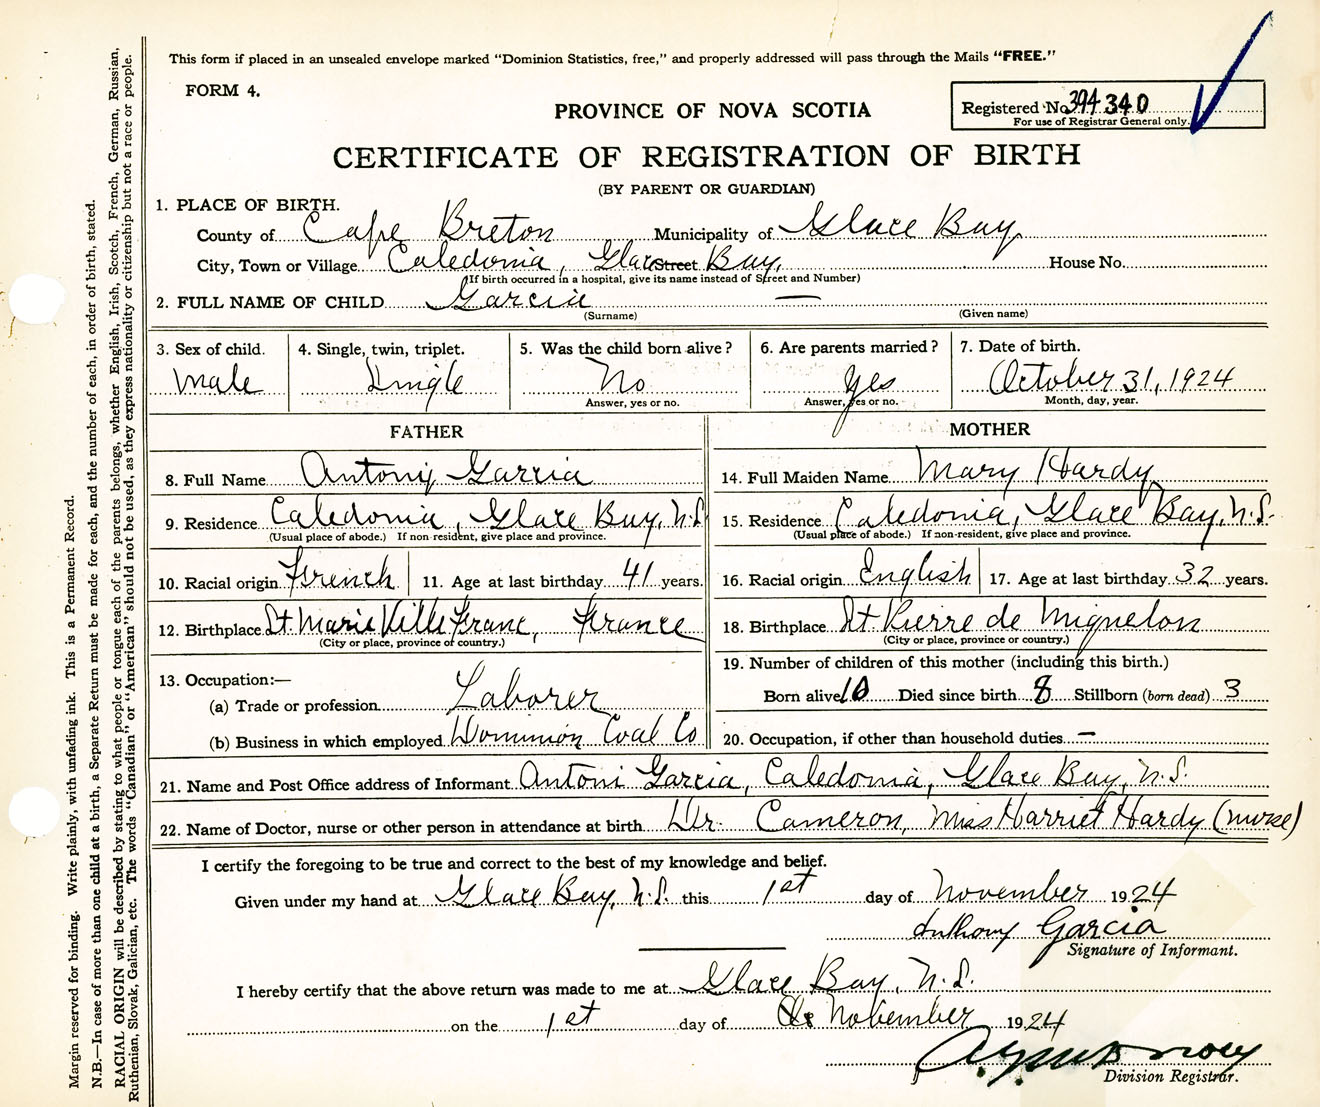 This form if placed in an unsealed envelope marked "Dominion Statistics, free," and properly addressed will pass through the Mails "FREE."
FORM 4.
PROVINCE OF NOVA SCOTIA
Registered No. 394 340
For use of Registrar General only.
CERTIFICATE OF REGISTRATION OF BIRTH
(BY PARENT OR GUARDIAN)
1. PLACE OF BIRTH.
County of Cape Breton Municipality of Glace Bay
City, Town or Village Caledonia, Glace Street Bay, House No.
(If birth occurred in a hospital, give its name instead of Street and Number)
2. FULL NAME OF CHILD Garcia —
(Surname) (Given name)
3. Sex of child. 4. Single, twin, triplet. 5. Was the child born alive? 6. Are parents married? 7. Date of birth.
Male Single No Yes October 31, 1924
Answer, yes or no. Answer, yes or no. Month, day, year.
FATHER MOTHER
8. Full Name Antoni Garcia 14. Full Maiden Name Mary Hardy
9. Residence Caledonia, Glace Bay, N.S. 15. Residence Caledonia, Glace Bay, N.S.
(Usual place of abode.) If non-resident, give place and province. (Usual place of abode.) If non-resident, give place and province.
10. Racial origin French 11. Age at last birthday 41 years. 16. Racial origin English 17. Age at last birthday 32 years.
12. Birthplace St. Marie Ville Franc, France 18. Birthplace St. Pierre de Miquelon
(City or place, province or country.) (City or place, province or country.)
13. Occupation:— 19. Number of children of this mother (including this birth.)
(a) Trade or profession Laborer Born alive 10 Died since birth 8 Stillborn (born dead) 3
(b) Business in which employed Dominion Coal Co 20. Occupation, if other than household duties —
21. Name and Post Office address of Informant Antoni Garcia, Caledonia, Glace Bay, N.S.
22. Name of Doctor, nurse or other person in attendance at birth Dr. Cameron, Miss Harriet Hardy (nurse)
I certify the foregoing to be true and correct to the best of my knowledge and belief.
Given under my hand at Glace Bay, N.S. this 1st day of November 1924
Anthony Garcia
Signature of Informant.
I hereby certify that the above return was made to me at Glace Bay, N.S.
on the 1st day of November 1924
Division Registrar.
Margin reserved for binding. Write plainly, with unfading ink. This is a Permanent Record.
N.B.—In case of more than one child at a birth, a Separate Return must be made for each, and the number of each, in order of birth, stated.
RACIAL ORIGIN will be described by stating to what people or tongue each of the parents belongs, whether English, Irish, Scotch, French, German, Russian,
Ruthenian, Slovak, Galician, etc. The words "Canadian" or "American" should not be used, as they express nationality or citizenship but not a race or people.